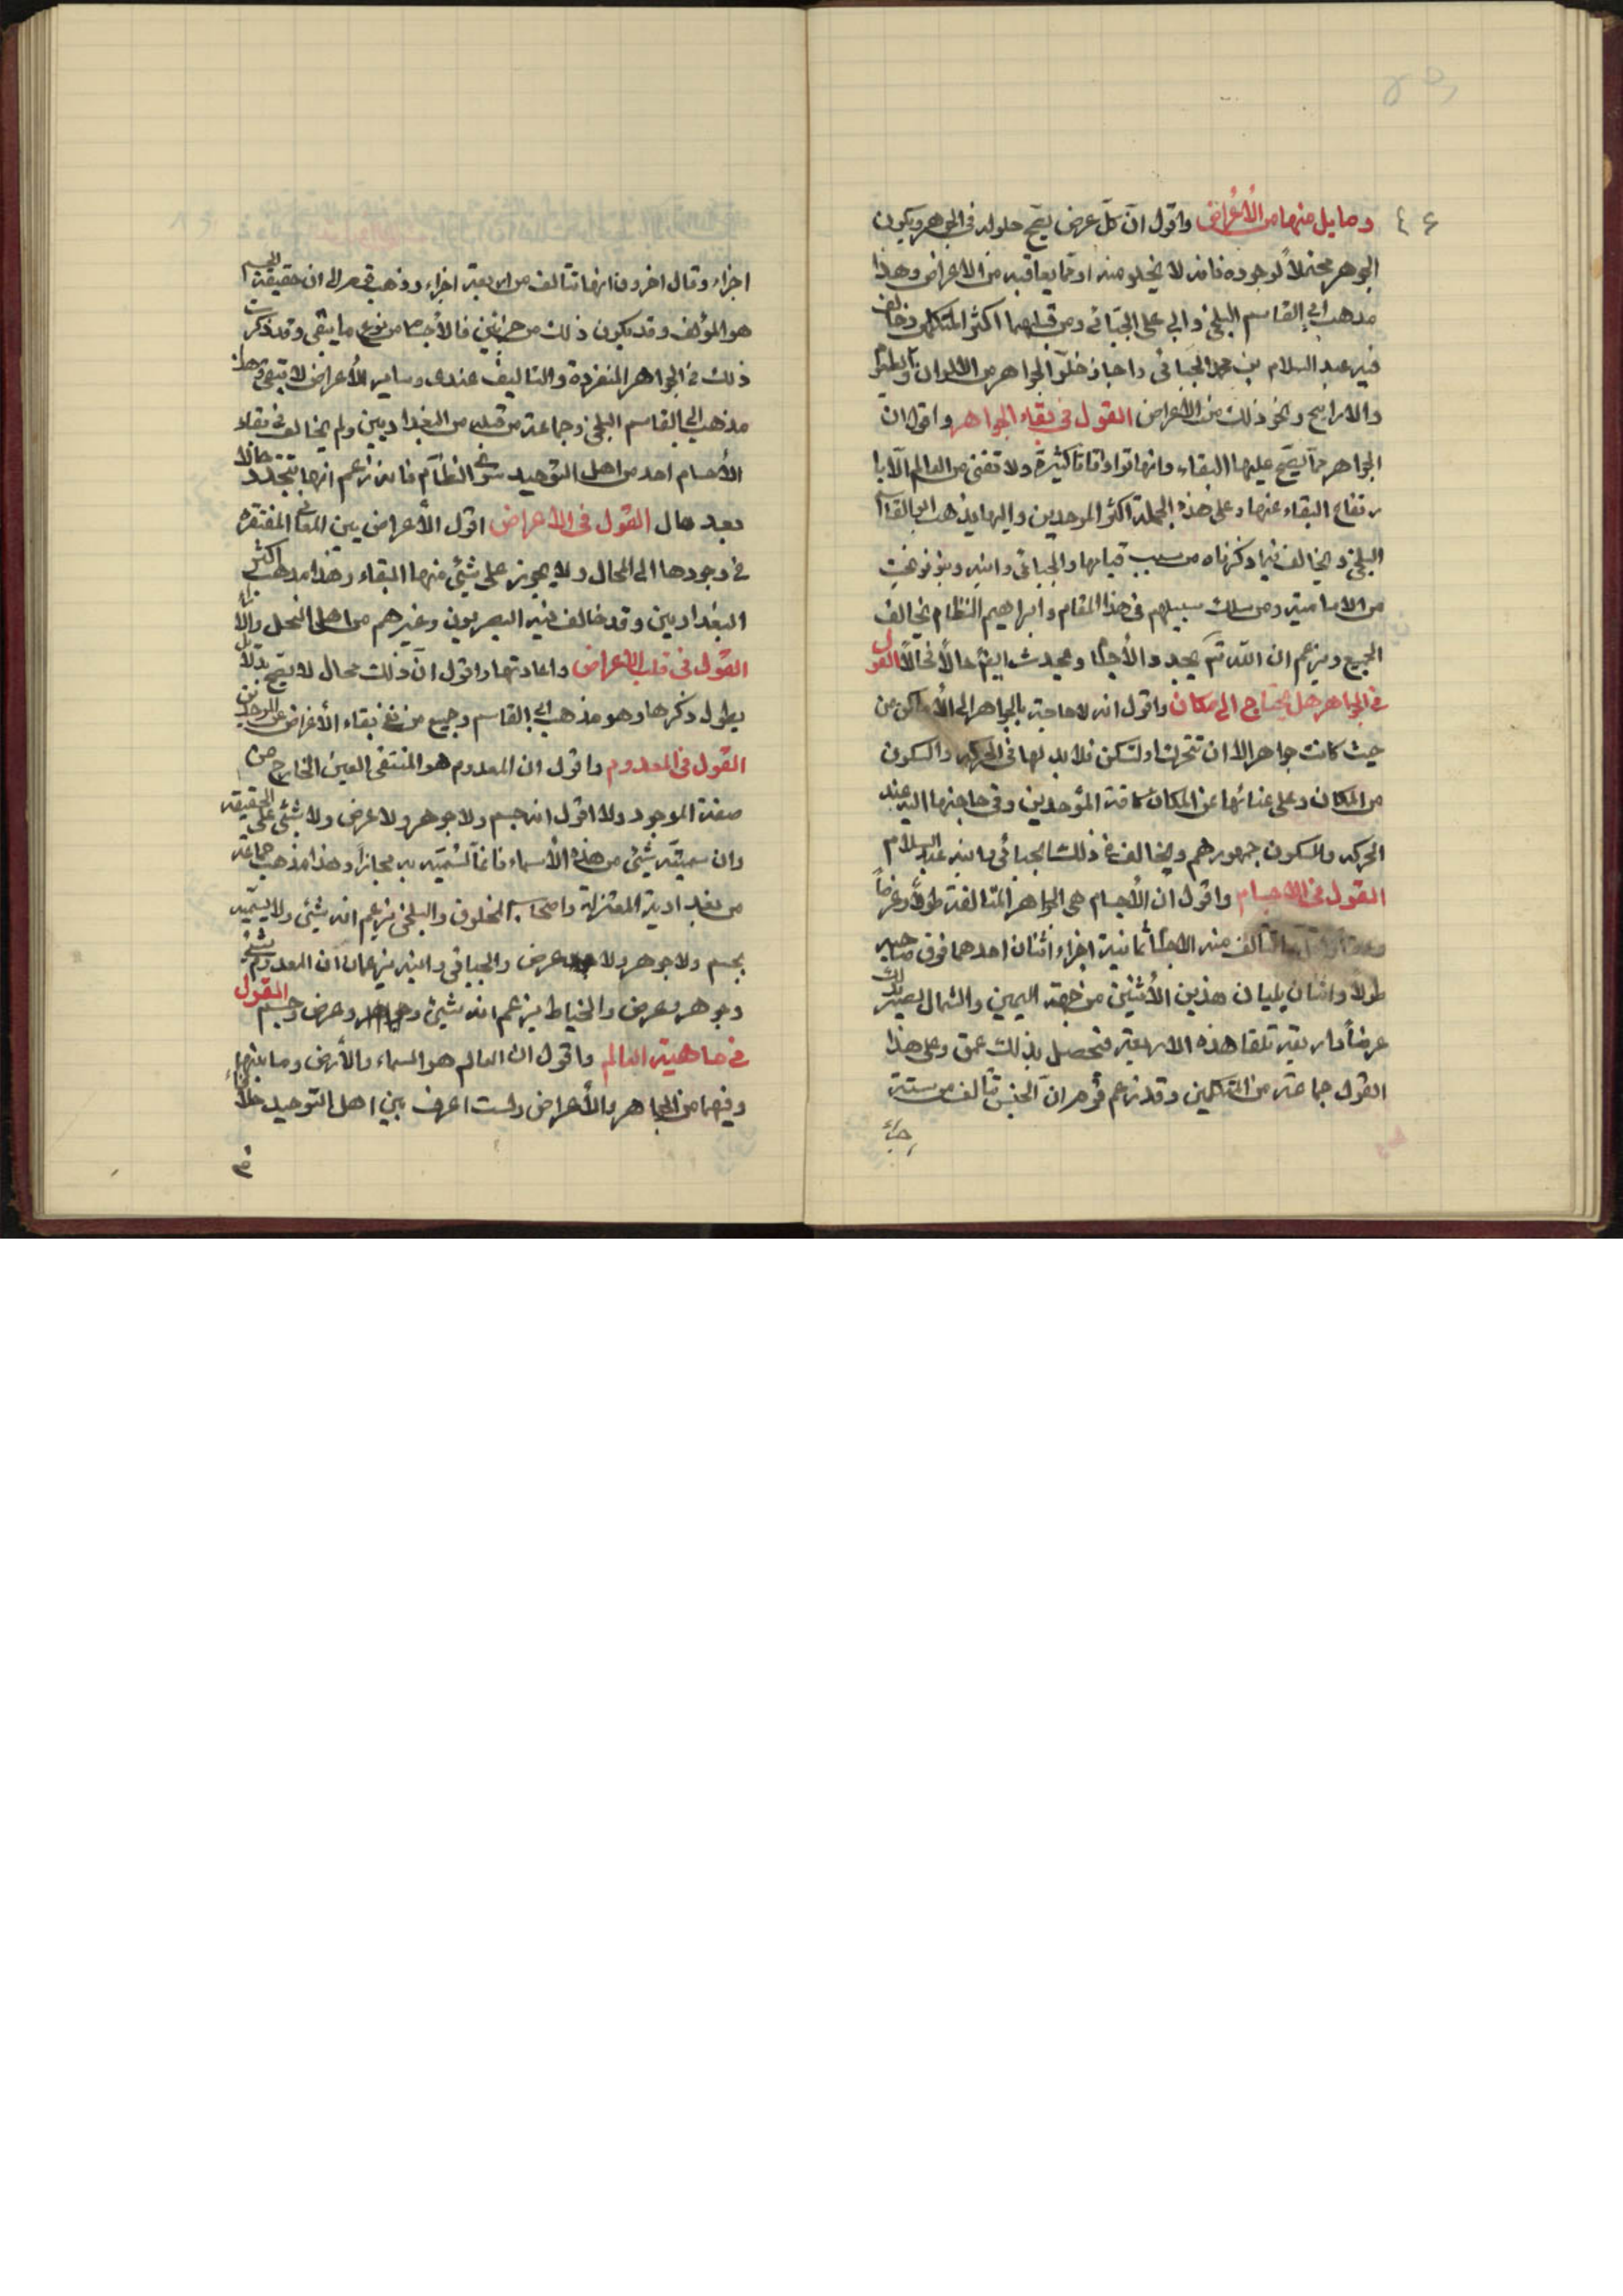 ٤٤ وما يلي منها من الأعراض واقول ان كل عرض يصح حلوله فى الجوهر ويكون
الجوهر محتملاً لوجوده فانه لا يخلو منه او مما يعاقبه من الاعراض وهذا
مذهب ابى القاسم البلخى وابى على الجبائى ومن قبلهما اكثر المتكلمين وخالف
فيه عبد السلام بن محمد الجبائى واجاز خلو الجواهر من الالوان والطعوم
والارايح ونحو ذلك من الاعراض القول فى بقاء الجواهر واقول ان
الجواهر مما يصح عليها البقاء وانها توجد اوقاتا كثيرة ولا تفنى من العالم الا با
رتفاع البقاء عنها وعلى هذه الجملة اكثر الموحدين واليها يذهب ابو القاسم
البلخى ويخالف فيما ذكرناه من سبب فنائها والجبائى وابنه وبنو نوبخت
من الامامية ومن سلك سبيلهم فى هذا المقام وابراهيم النظام يخالف
الجميع ويزعم ان الله تع يجدد الأجسام ويحدثها حالاً فحالاً القول
فى الجواهر هل تحتاج الى مكان واقول انه لا حاجة بالجواهر الى الأماكن من
حيث كانت جواهر الا ان تتحرك او تسكن فلا بد لها فى الحركه والسكون
من المكان وعلى غنائها عن المكان كافة الموحدين وفى حاجتها اليه عند
الحركه والسكون جمهورهم ويخالف فى ذلك الجبائى وابنه عبد السلام
القول فى الاجسام واقول ان الأجسام هى الجواهر المتالفة طولاً وعرضاً
وعمقاً واقل ما تتألف منه الاجسام ثمانية اجزاء اثنان احدهما فوق صاحبه
طولاً واثنان يليان هذين الأثنين من جهة اليمين والشمال يصير بذلك
عرضاً واربعة تلقا هذه الاربعة فتحصل بذلك عمق وعلى هذا
القول جماعة من المتكلمين وقد زعم قوم ان الجسم يتألف من ستة
اجزاء
اجزاء وقال اخرون انها تتألف من اربعة اجزاء وذهب قوم الى ان حقيقة الجسم
هو المؤلف وقد يكون ذلك من جزئين فالأجسام من نوع ما يبقى وقد ذكرت
ذلك فى الجواهر المنفردة والتاليف عندى وساير الأعراض لا تبقى وهذا
مذهب ابى القاسم البلخى وجماعة من قبله من البغداديين ولم يخالف فى بقاء
الأجسام احد من اهل التوحيد سوى النظام فانه زعم انها تتجدد حالا
بعد حال القول فى الاعراض اقول الأعراض هى المعانى المفتقرة
فى وجودها الى المحال ولا يجوز على شئ منها البقاء وهذا مذهب اكثر
البغداديين وقد خالف فيه البصريون وغيرهم من اهل النحل والآراء
القول فى قلب الاعراض واعادتها واقول ان ذلك محال لا يصح بدلايل
يطول ذكرها وهو مذهب ابى القاسم وجميع من نفى بقاء الأعراض من الموحدين
القول فى المعدوم واقول ان المعدوم هو المنتفى العين الخارج من
صفة الموجود ولا اقول انه جسم ولا جوهر ولا عرض ولا شئ على الحقيقة
وان سميته بشئ من هذه الأسماء فانما تسميه به مجازاً وهذا مذهب جماعة
من بغدادية المعتزلة واصحاب المخلوق والبلخى يزعم انه شئ ولا يسميه
بجسم ولا جوهر ولا عرض والجبائى وابنه يزعمان ان المعدوم شئ
وجوهر وعرض والخياط يزعم انه شئ وجوهر وعرض وجسم القول
فى ماهية العالم واقول ان العالم هو السماء والأرض وما بينهما
وفيهما من الجواهر والأعراض ولست اعرف بين اهل التوحيد خلافا